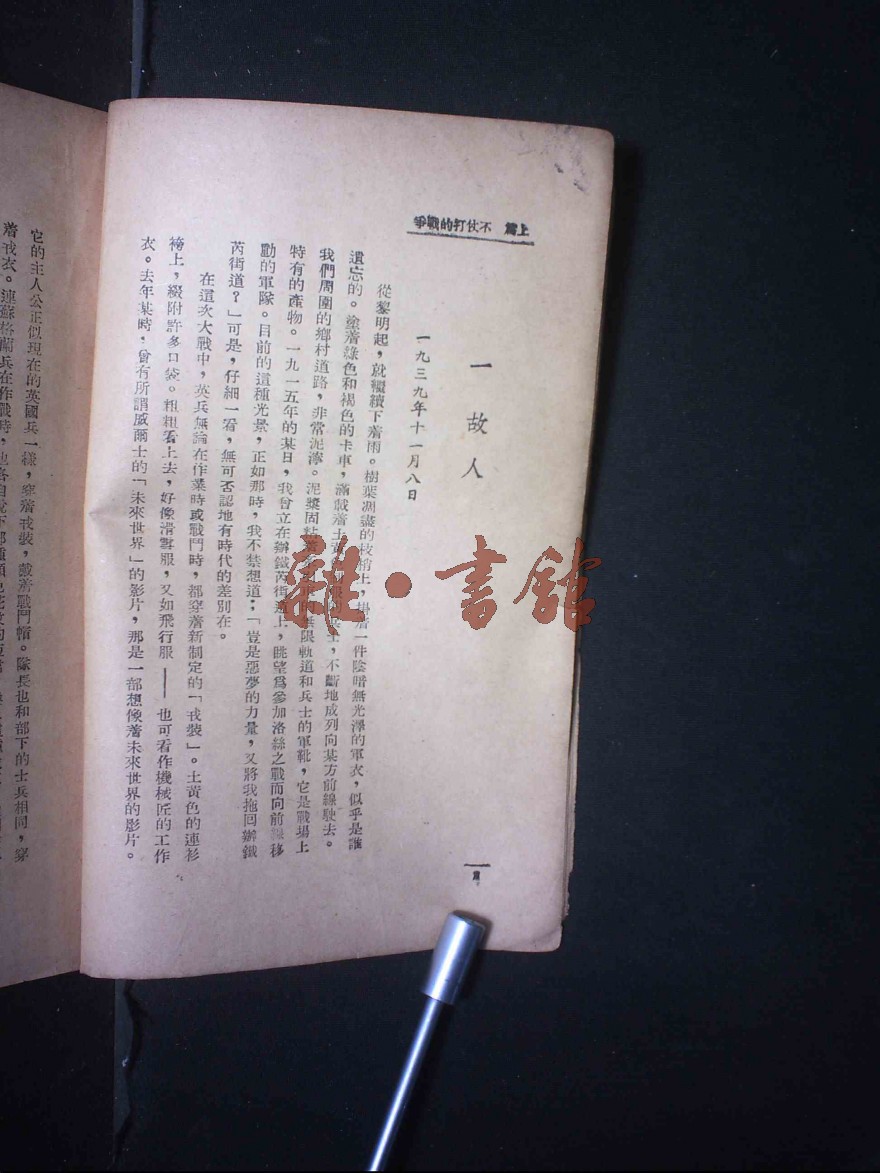 上篇 不仗打的戰爭
一 故人
一九三九年十一月八日
從黎明起，就繼續下着雨。樹葉凋盡的枝梢上，掛着一件陰暗無光澤的軍衣，似乎是誰
遺忘的。塗着綠色和褐色的卡車，滿載着土黃 兵士，不斷地成列向某方前線駛去。
我們周圍的鄉村道路，非常泥濘。泥漿固粘着 的無限軌道和兵士的軍靴，它是戰場上
特有的產物。一九一五年的某日，我曾立在辦鐵芮街道上，眺望爲參加洛絲之戰而向前線移
動的軍隊。目前的這種光景，正如那時，我不禁想道：「豈是惡夢的力量，又將我拖回辦鐵
芮街道？」可是，仔細一看，無可否認地有時代的差別在。
在這次大戰中，英兵無論在作業時或戰鬥時，都穿着新制定的「戎裝」。土黃色的連衫
袴上，綴附許多口袋。粗粗看上去，好像滑雪服，又如飛行服——也可看作機械匠的工作
衣。去年某時，曾有所謂威爾士的「未來世界」的影片，那是一部想像着未來世界的影片。
它的主人公正似現在的英國兵一樣，穿着戎裝，戴着戰鬥帽。隊長也和部下的士兵相同，穿
着戎衣。連蘇格蘭兵在作戰時，也各自
雜·書館